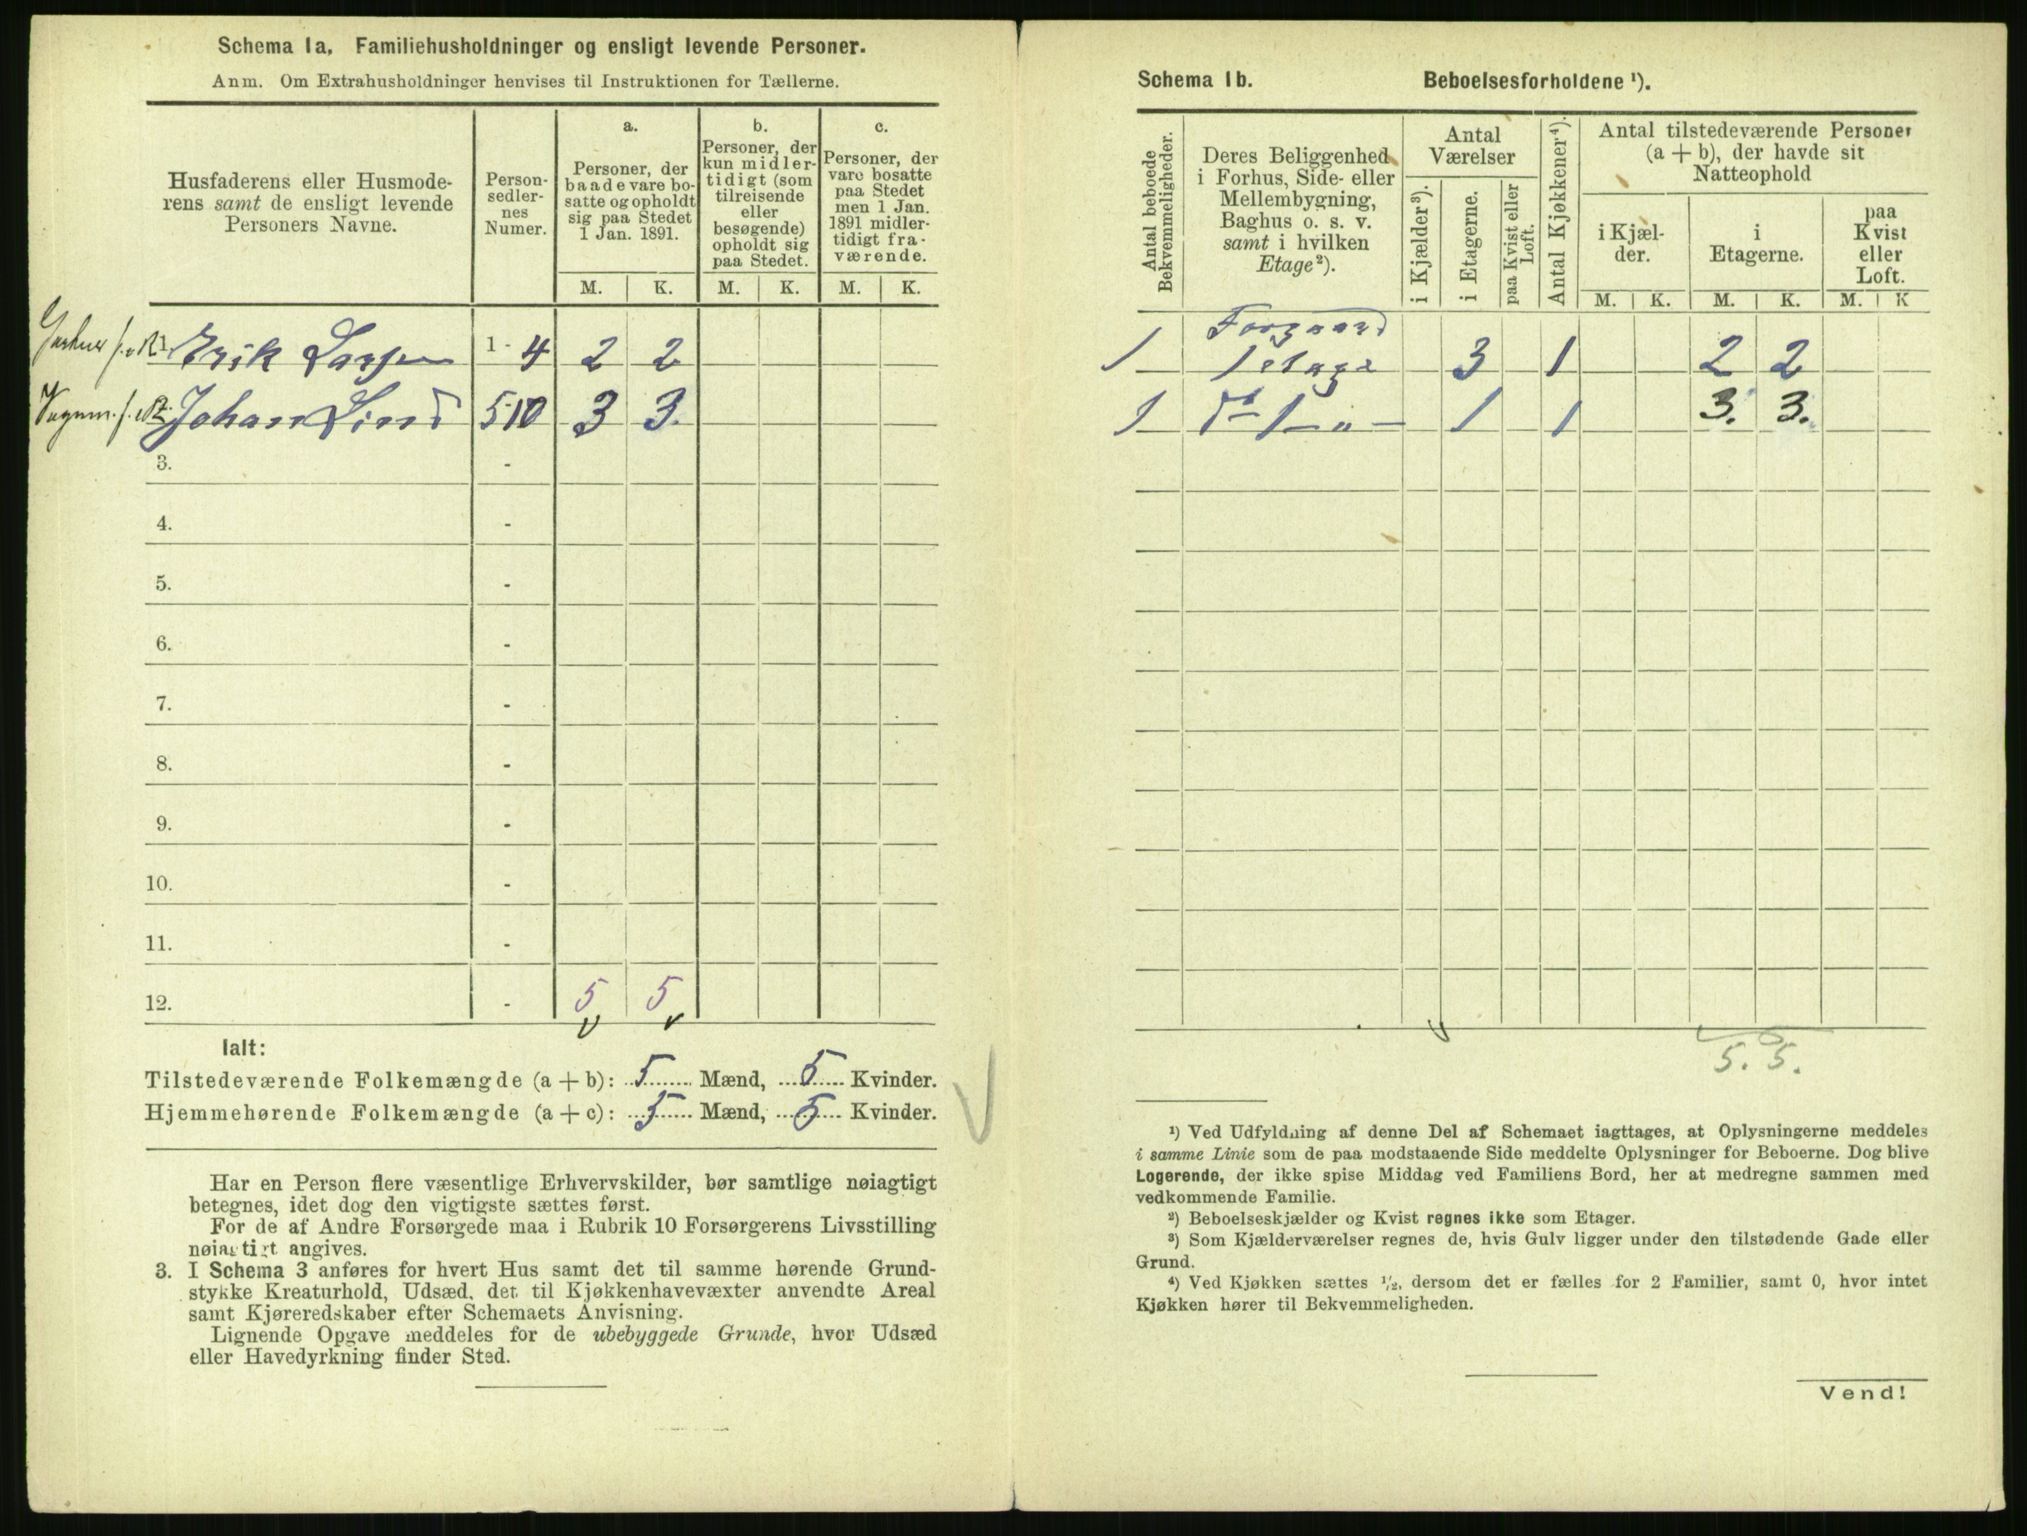 Schema 1a. Familiehusholdninger og ensligt levende Personer.
Anm. Om Extrahusholdninger henvises til Instruktionen for Tællerne.
Husfaderens eller Husmode-
rens samt de ensligt levende
Personers Navne.
Person-
sedler-
nes
Numer.
a.
Personer, der
baade vare bo-
satte og opholdt
sig paa Stedet
1 Jan. 1891.
b.
Personer, der
kun midler-
tidigt (som
tilreisende
eller
besøgende)
opholdt sig
paa Stedet.
c.
Personer, der
vare bosatte
paa Stedet
men 1 Jan.
1891 midler-
tidigt fra-
værende.
M. K. M. K. M. K.
1. Erik Larsen 1 - 4 2 2
Johan Lind 5-10 3 3.
3. -
4. -
5. -
6. -
7. -
8. -
9. -
10. -
11. -
12. - 5 5
Ialt:
Tilstedeværende Folkemængde (a + b): 5 Mænd, 5 Kvinder.
Hjemmehørende Folkemængde (a + c): 5 Mænd, 5 Kvinder.
Har en Person flere væsentlige Erhvervskilder, bør samtlige nøiagtigt
betegnes, idet dog den vigtigste sættes først.
For de af Andre Forsørgede maa i Rubrik 10 Forsørgerens Livsstilling
nøiagtigt angives.
3. I Schema 3 anføres for hvert Hus samt det til samme hørende Grund-
stykke Kreaturhold, Udsæd, det til Kjøkkenhavevæxter anvendte Areal
samt Kjøreredskaber efter Schemaets Anvisning.
Lignende Opgave meddeles for de ubebyggede Grunde, hvor Udsæd
eller Havedyrkning finder Sted.
Schema 1b. Beboelsesforholdene ¹).
Antal beboede
Bekvemmeligheder.
Deres Beliggenhed
i Forhus, Side- eller
Mellembygning,
Baghus o. s. v.
samt i hvilken
Etage²).
Antal
Værelser
i Kjælder³).
i Etagerne.
paa Kvist eller
Loft.
Antal Kjøkkener⁴).
Antal tilstedeværende Personer
(a + b), der havde sit
Natteophold
i Kjæl-
der.
i
Etagerne.
paa
Kvist
eller
Loft.
M. K. M. K. M. K
Forgaard
1 1 etage 3 1 2 2
1 1 — „ — 1 1 3. 3.
5. 5.
¹) Ved Udfyldning af denne Del af Schemaet iagttages, at Oplysningerne meddeles
i samme Linie som de paa modstaaende Side meddelte Oplysninger for Beboerne. Dog blive
Logerende, der ikke spise Middag ved Familiens Bord, her at medregne sammen med
vedkommende Familie.
²) Beboelseskjælder og Kvist regnes ikke som Etager.
³) Som Kjælderværelser regnes de, hvis Gulv ligger under den tilstødende Gade eller
Grund.
⁴) Ved Kjøkken sættes ½, dersom det er fælles for 2 Familier, samt 0, hvor intet
Kjøkken hører til Bekvemmeligheden.
Vend!